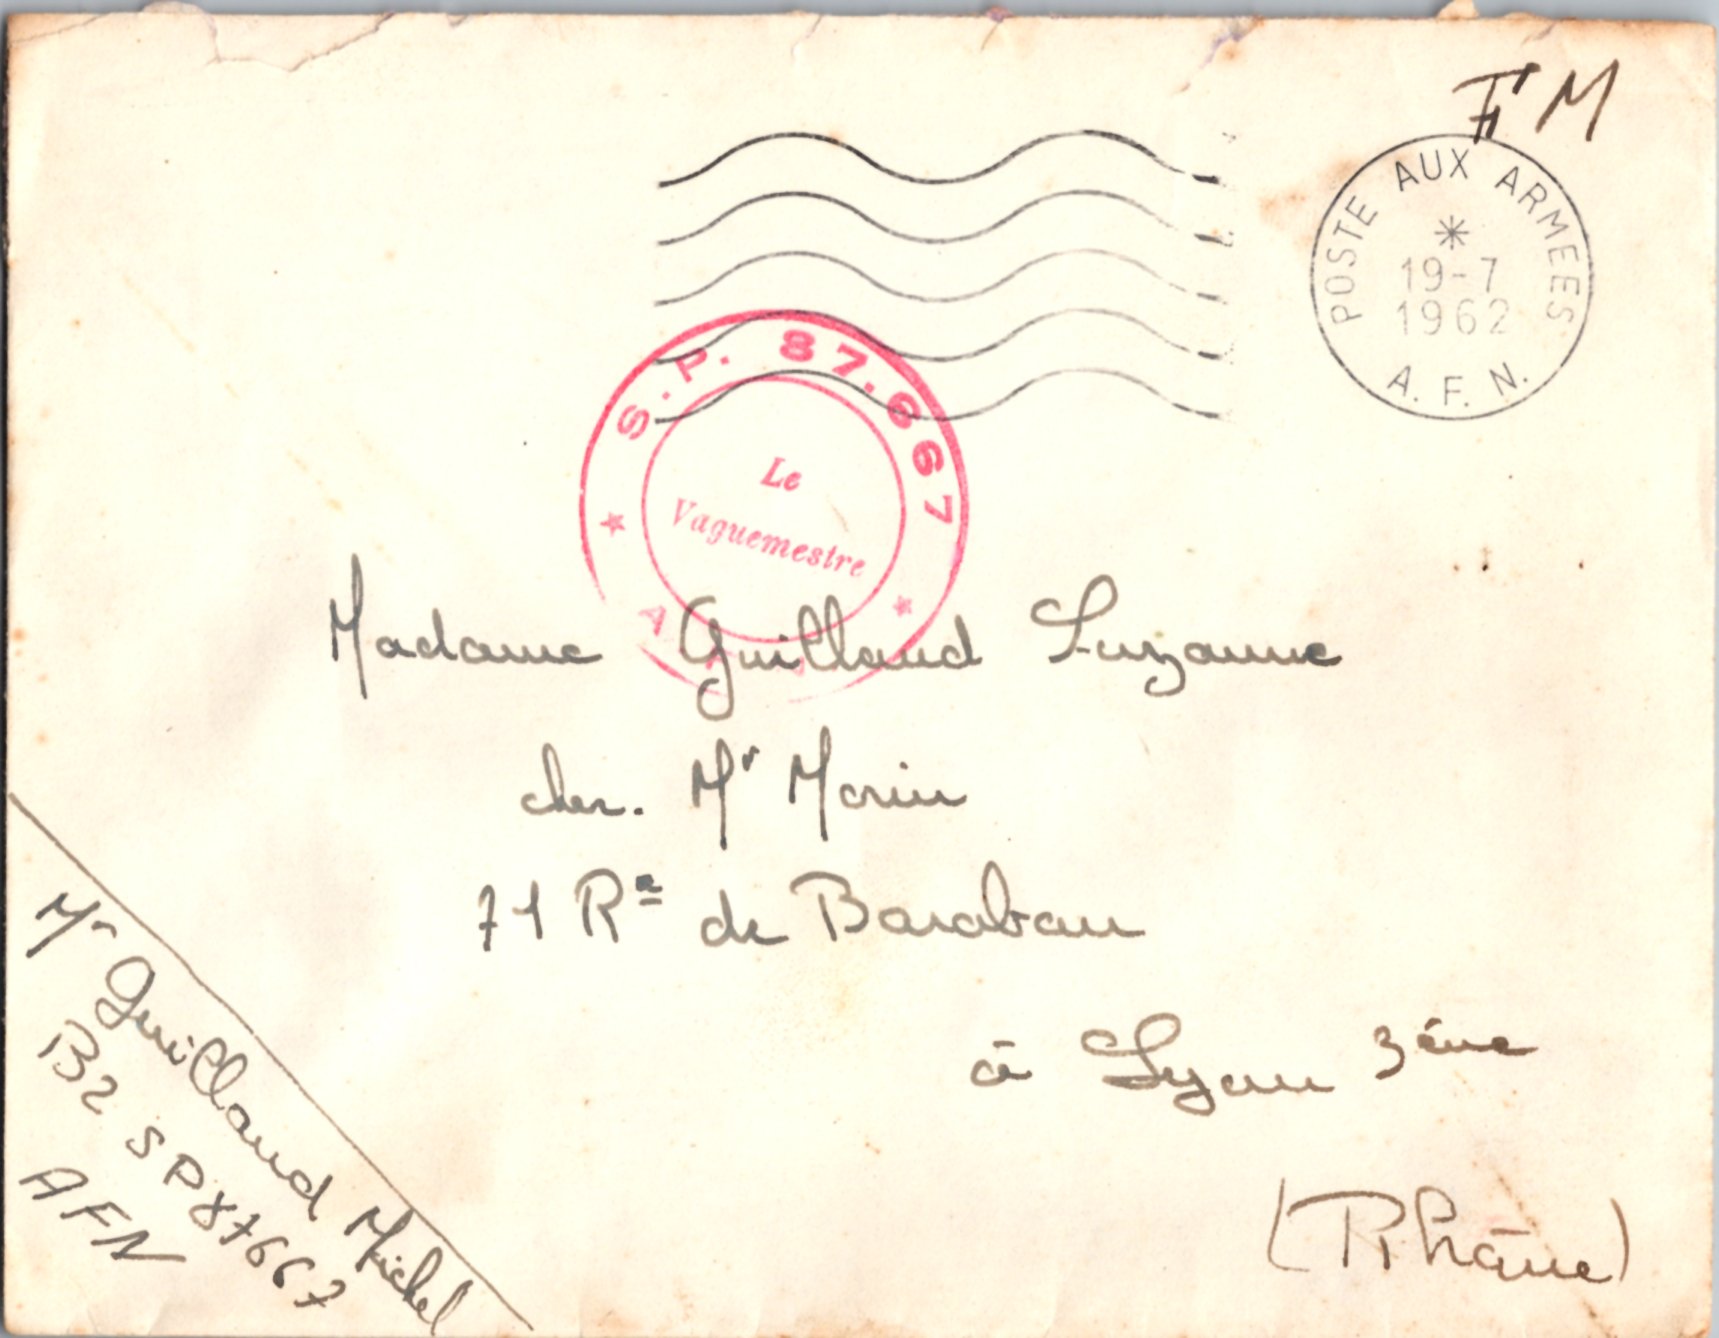 FM
POSTE AUX ARMEES
19-7
1962
A. F. N.
S.P. 87.667
Le
Vaguemestre
Madame Guillaud Suzanne
chez. Mr Morin
71 Rue de Baraban
à Lyon 3ème
(Rhône)
Mr Guillaud Michel
B2 SP 87667
AFN